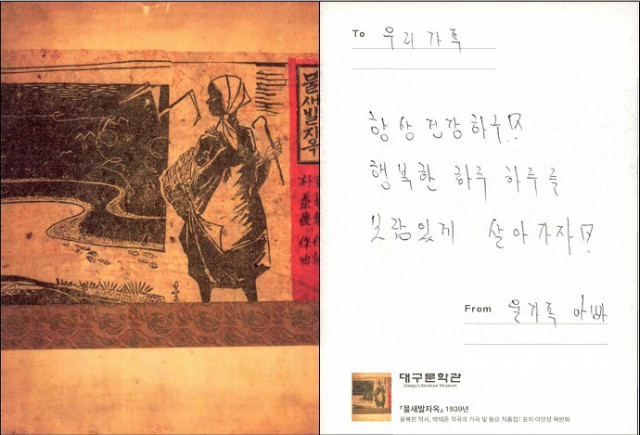 물새발자옥
朴泰俊 作曲
To 우리 가족
항상 건강하구!
행복한 하루 하루를
보람있게 살아가자!
From 울가족 아빠
대구문학관
Daegu Literature Museum
『물새발자옥』 1939년
윤복진 작시, 박태준 작곡의 가곡 및 동요 작품집/ 표지 이인성 목판화